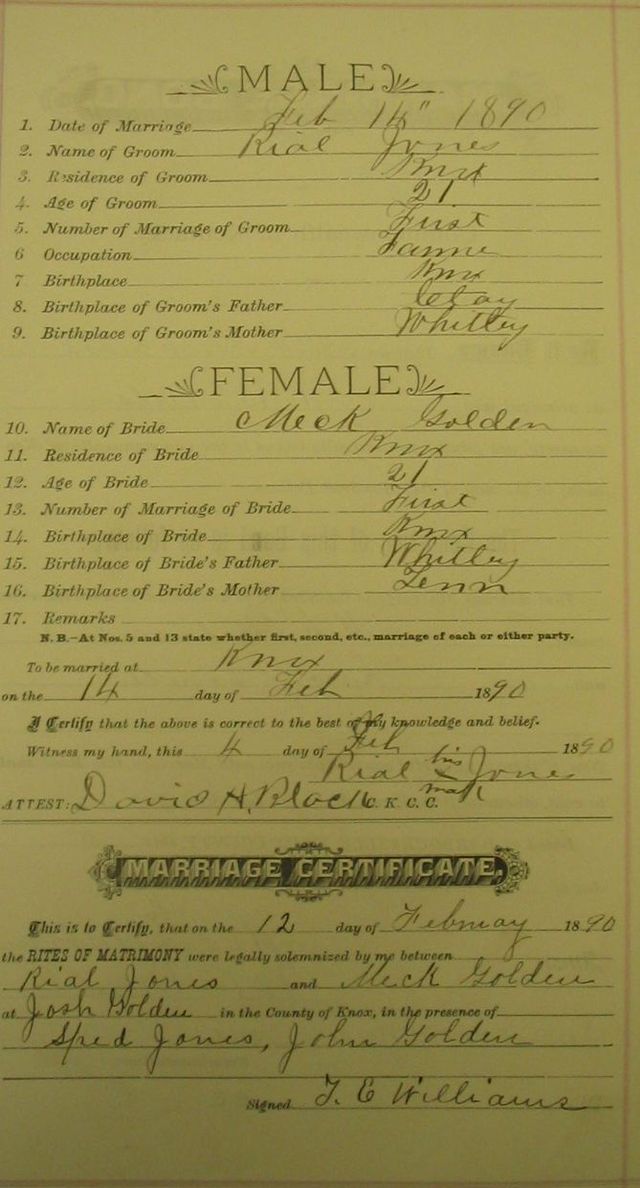 MALE
1. Date of Marriage Feb 14" 1890
2. Name of Groom Rial Jones
3. Residence of Groom Knox
4. Age of Groom 21
5. Number of Marriage of Groom First
6 Occupation Farmer
7 Birthplace Knox
8. Birthplace of Groom's Father Clay
9. Birthplace of Groom's Mother Whitley
FEMALE
10. Name of Bride Meck Golden
11. Residence of Bride Knox
12. Age of Bride 21
13. Number of Marriage of Bride First
14. Birthplace of Bride Knox
15. Birthplace of Bride's Father Whitley
16. Birthplace of Bride's Mother Tenn
17. Remarks
N. B.—At Nos. 5 and 13 state whether first, second, etc., marriage of each or either party.
To be married at Knox
on the 14 day of Feb 1890
I Certify that the above is correct to the best of my knowledge and belief.
Witness my hand, this 4 day of Feb 1890
Rial his x mark Jones
ATTEST: David H. Black C. K. C. C.
MARRIAGE CERTIFICATE.
This is to Certify, that on the 12 day of February 1890
the RITES OF MATRIMONY were legally solemnized by me between
Rial Jones and Meck Golden
at Josh Golden in the County of Knox, in the presence of
Sped Jones, John Golden
Signed T. E Williams